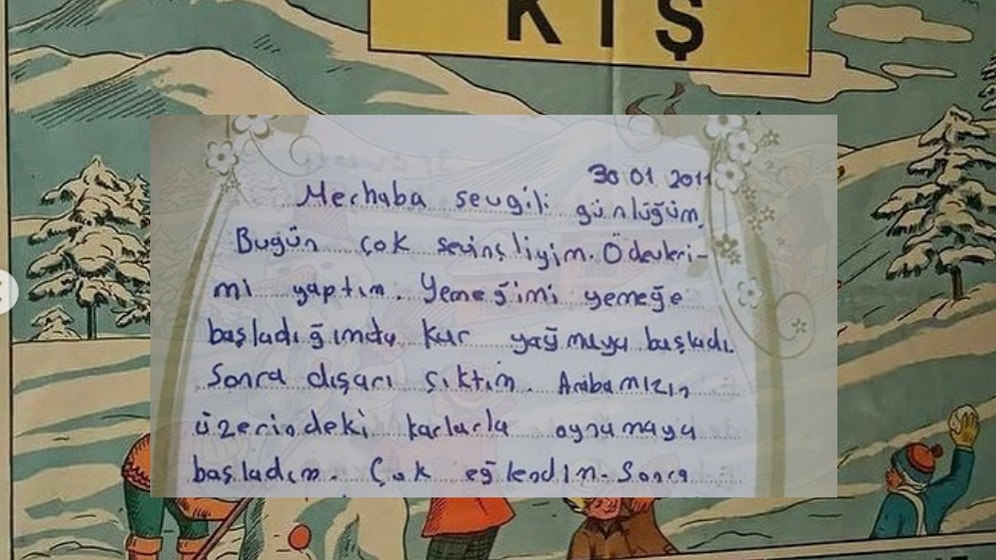 KIŞ
30.01.2011
Merhaba sevgili günlüğüm.
Bugün çok sevinçliyim. Ödevleri-
mi yaptım. Yemeğimi yemeğe
başladığımda kar yağmaya başladı.
Sonra dışarı çıktım. Arabamızın
üzerindeki karlarla oynamaya
başladım. Çok eğlendim. Sonra